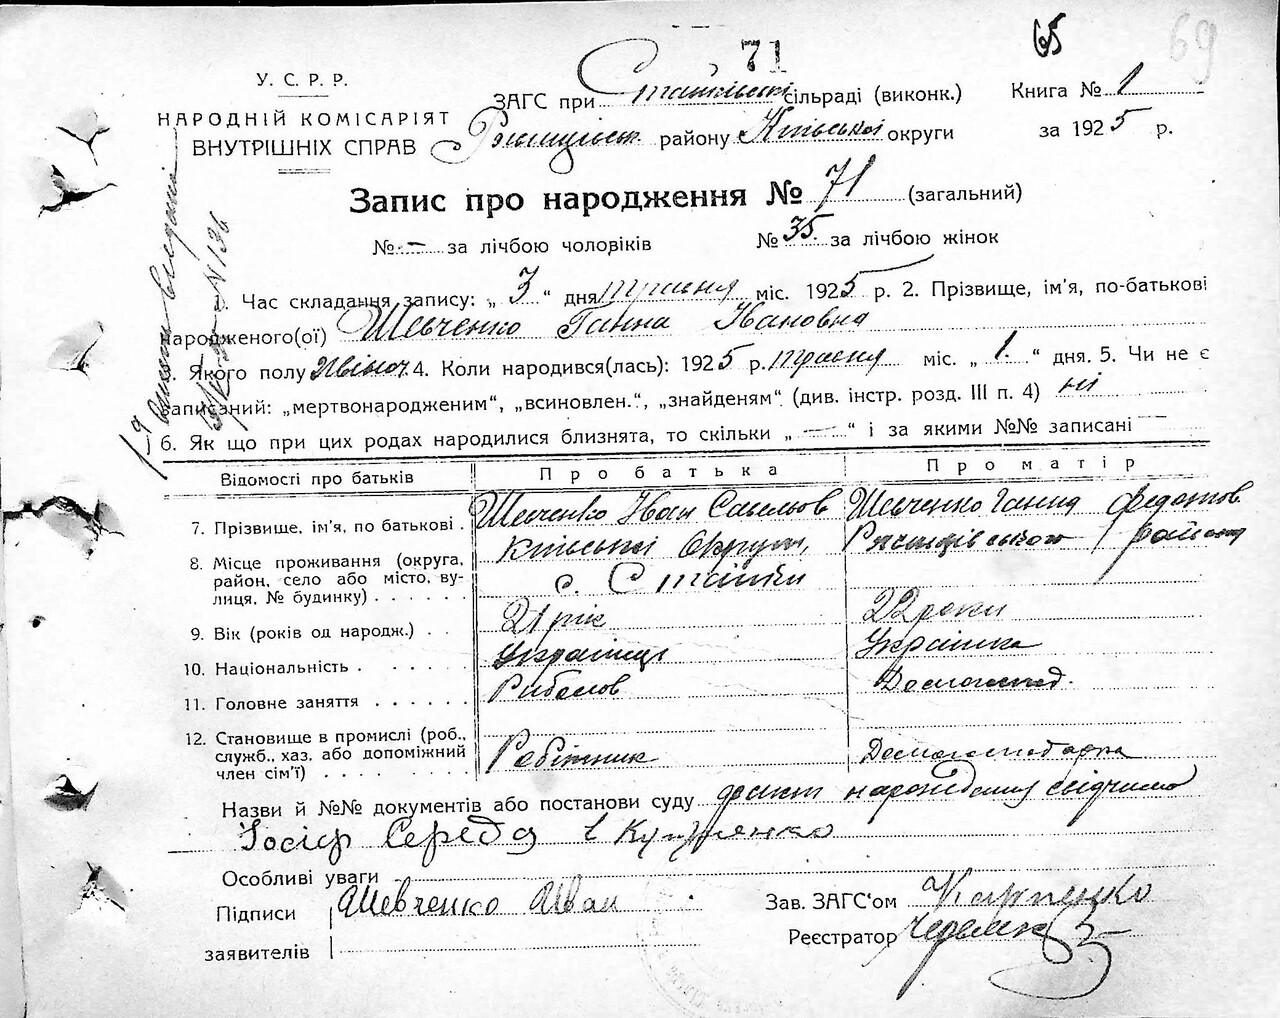 71
65
69
У. С. Р. Р.
НАРОДНІЙ КОМІСАРІЯТ
ВНУТРІШНІХ СПРАВ
ЗАГС при Стайківській сільраді (виконк.)
Книга № 1
району Київської округи
за 1925 р.
Запис про народження № 71 (загальний)
№ – за лічбою чоловіків № 35. за лічбою жінок
1. Час складання запису: „ 3 “ дня травня міс. 1925 р. 2. Прізвище, ім'я, по-батькові
народженого(ої) Шевченко Ганна Ивановна
3. Якого полу жіноч. 4. Коли народився(лась): 1925 р. травня міс. „ 1. “ дня. 5. Чи не є
записаний: „мертвонародженим“, „всиновлен.“, „знайденям“ (див. інстр. розд. III п. 4) ні
6. Як що при цих родах народилися близнята, то скільки „ — “ і за якими №№ записані —
Відомості про батьків Про батька Про матір
7. Прізвище, ім'я, по батькові . Шевченко Иван Савельов Шевченко Ганна Федотов.
8. Місце проживання (округа, Київської Округи, Ржищівського району
район, село або місто, ву- с. Стайки
лиця, № будинку) . . . . .
9. Вік (років од народж.) . . 21 рік 22 роки
10. Національність . . . . . Українець Українка
11. Головне заняття . . . . . . Риболов Домогоспод.
12. Становище в промислі (роб.,
служб., хаз. або допоміжний Робітник Домогосподарка
член сім'ї) . . . . . . . .
Назви й №№ документів або постанови суду факт народження свідчили
Іосіф Середа
Особливі уваги
Підписи Шевченко Иван
Зав. ЗАГС'ом Карпенко
заявителів
Реєстратор
N 136